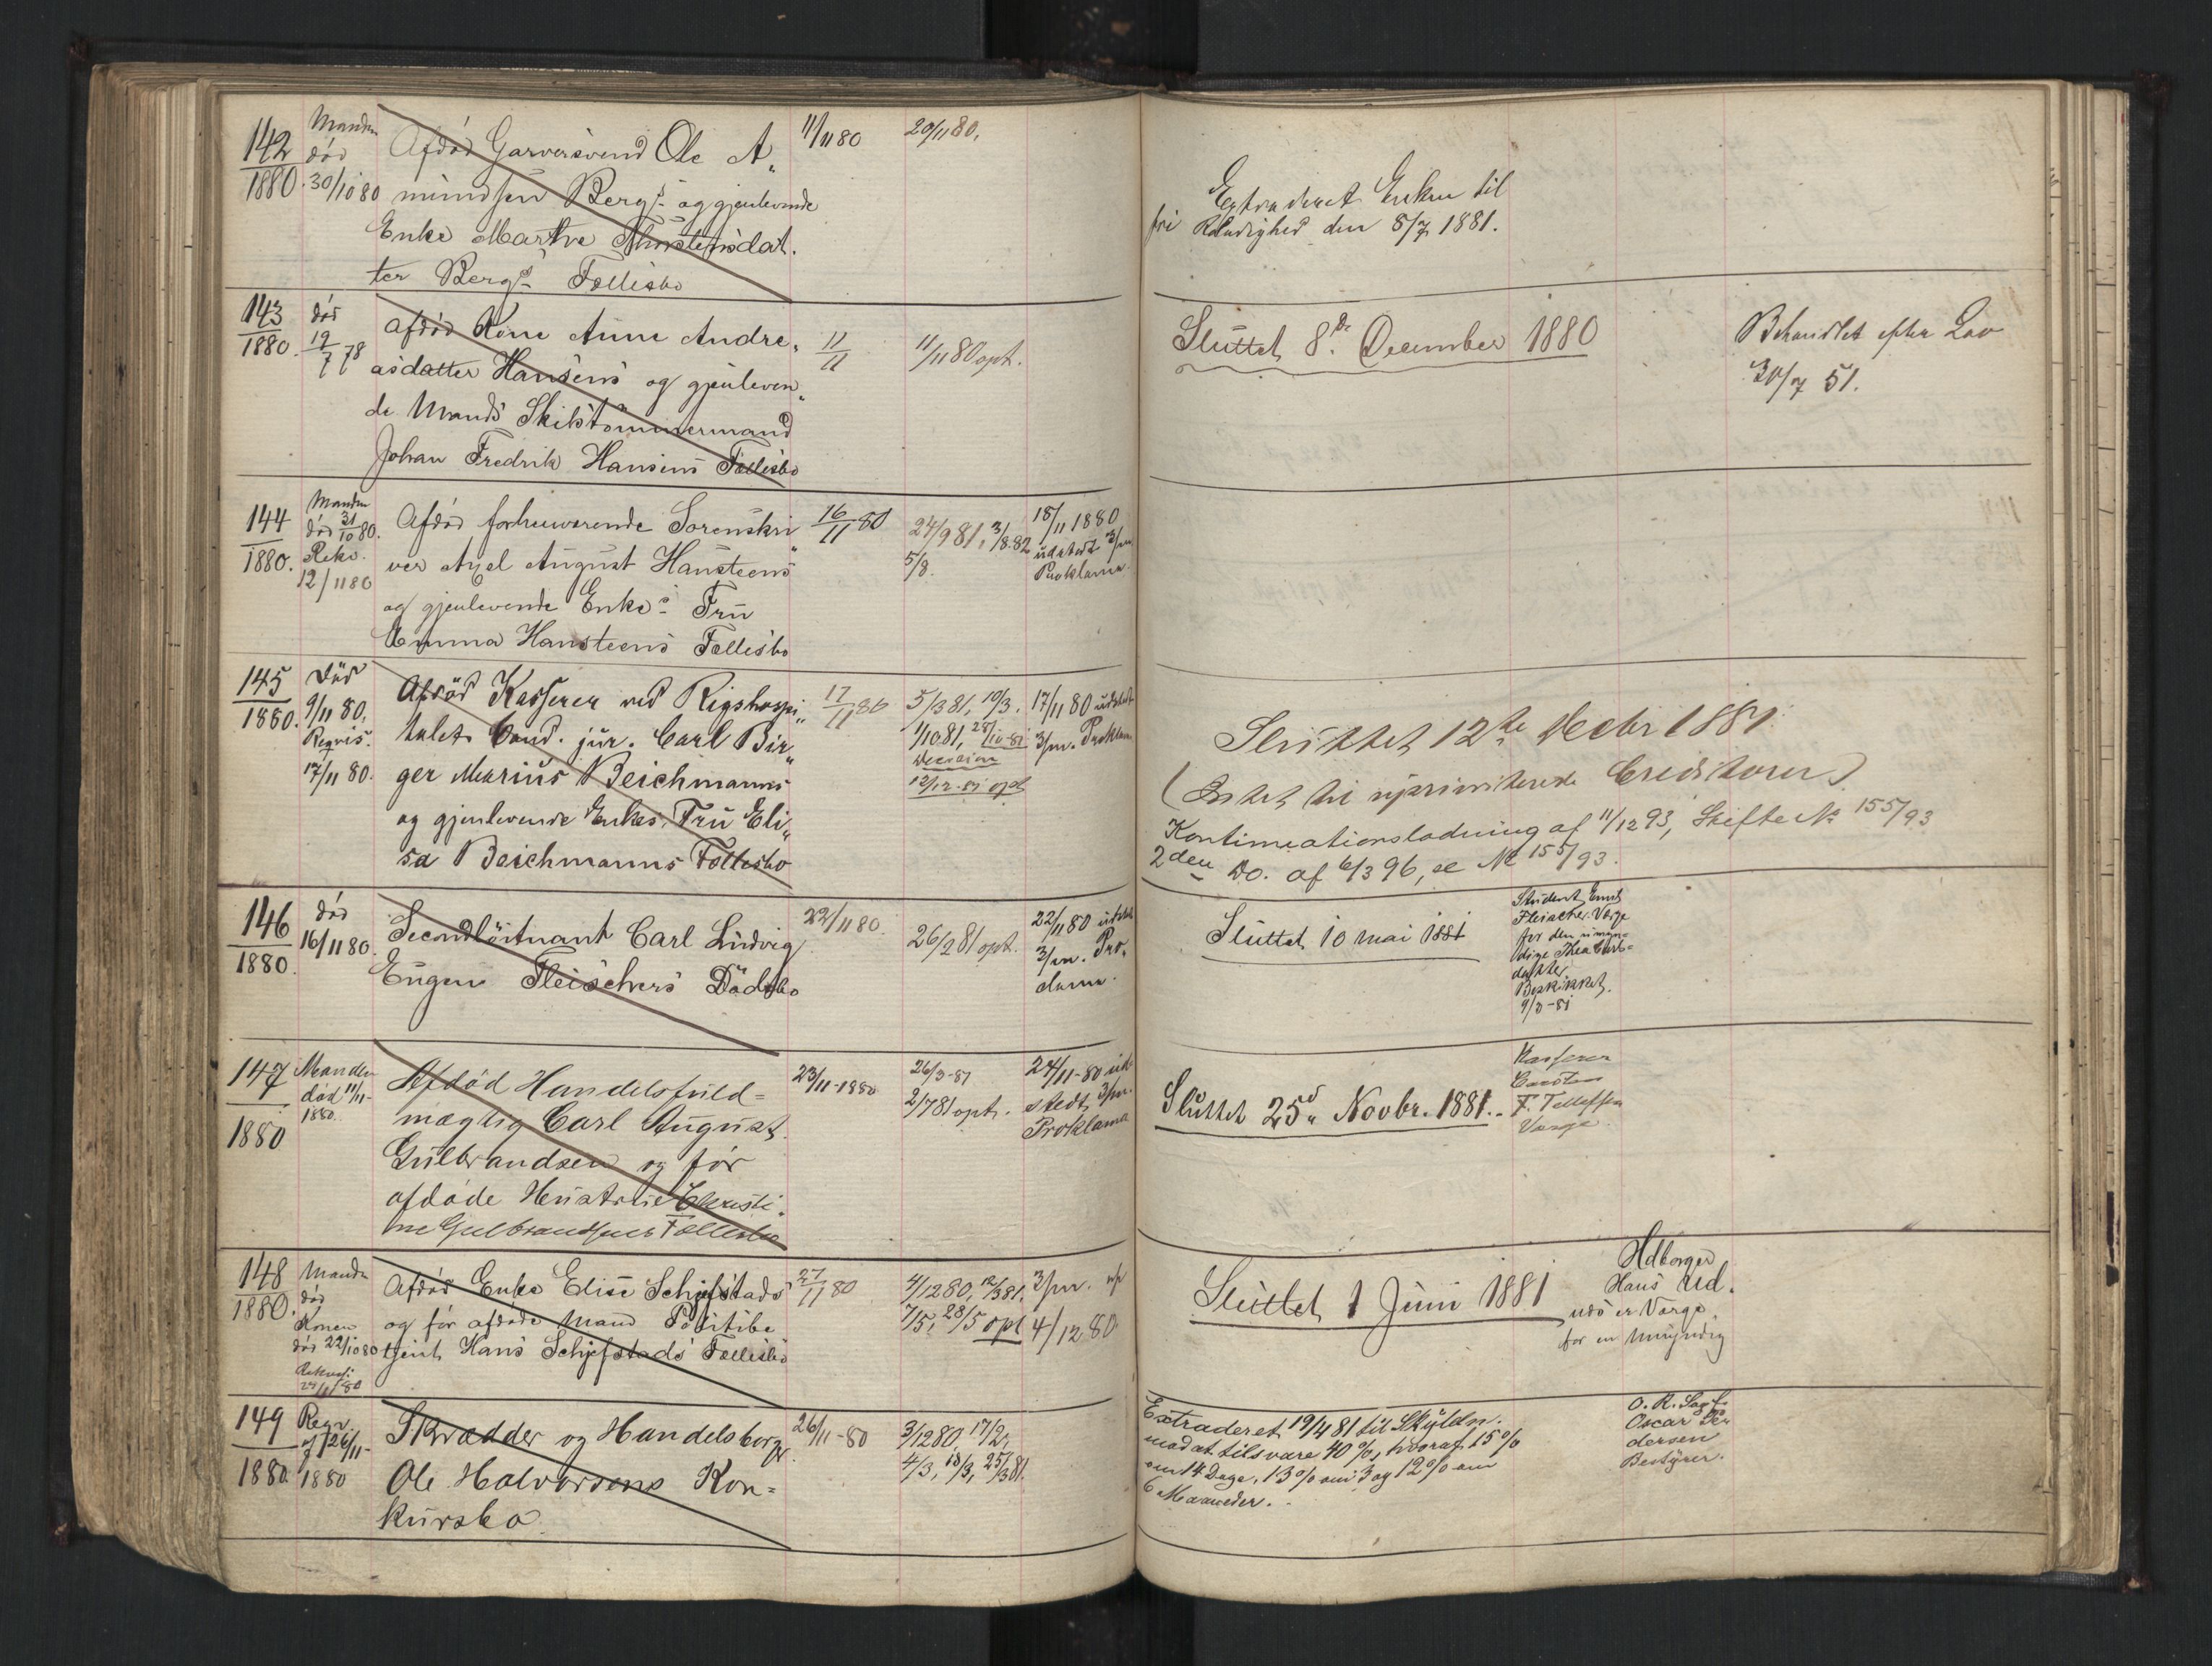 142
1880.
Manden
død
30/10 80
Afdød Garversvend Ole A„
mundsen Bergs og gjenlevende
Enke Marthe Thorstensdat.
ter Bergs Fællesbo
11/11 80
20/11 80.
Extraderet Enken til
fri Raadighed den 8/7 1881.
143
1880.
død
19/7 78
Afdød Kone Anne Andre„
asdatter Hansens og gjenleven„
de Mands Skibstømmermand
Johan Fredrik Hansens Fællesbo
11/11
11/11 80 opt.
Sluttet 8de December 1880
Behandlet efter Lov
30/7 51.
144
1880.
Manden
død 31/10 80.
Rekv.
12/11 80
Afdød forhenværende Sorenskri„
ver Axel August Hansteens
og gjenlevende Enkes Fru
Emma Hansteens Fællesbo
16/11 80
24/9 81, 3/8.82
5/8.
18/11 1880
udstedt 3/m
Proklama.
145
1880.
Død
9/11 80.
Reqvis.
17/11 80.
Afdød Kasserer ved Rigshospi„
talet Cand. jur. Carl Bir„
ger Marius Beichmanns
og gjenlevende Enkes, Fru Eli„
sa Beichmanns Fællesbo
17/11 80
5/3 81, 10/3.
1/10 81, 28/10-81
Decision
12/12-81 opt
17/11 80 udstedt
3/m. Proklam
Sluttet 12te Decbr 1881.
(Intet til uprioriterede Creditorer)
Kontinuationsladning af 11/12 93, Skifte No 155/93
2den Do. af 6/3 96, se No 155/93.
146
1880.
død
16/11 80.
Secondløitnant Carl Ludvig
Eugen Fleischers Dødsbo
22/11 80.
26/2 81 opt.
22/11 80 udst
3/m. Pro„
clama.
Sluttet 10 Mai 1881
Student Ernst
Fleischer Værge
for den umyn=
dige Thea Carls=
datter
Beskikket.
9/3-81
147
1880
Manden
død 11/11-
1880.
Afdød Handelsfuld=
mægtig Carl August
Gulbrandsen og før
afdøde Hustrue Christi„
ne Gulbrandsens Fællesbo
23/11-1880
26/3-81
2/7 81 opt.
24/11-80 ud
stedt 3/m.
Proklama
Sluttet 25d. Novbr. 1881.
Kasserer
Carsten
F. Tellefsen
Værge
148
1880.
Manden
død
Konen
død 22/10 80
Afdød Enke Elise Schjefstads
og før afdøde Mand Politibe
tjent Hans Schjefstads Fællesbo
27/11 80
4/12 80, 12/3 81,
7/5, 28/5 opt
3/m.
4/12 80
Sluttet 1 Juni 1881
Hdborger
Hans Ud.
nøs er Værge
for en Umyndig
149
1880
Reqv.
af 26/11-
1880
Skrædder og Handelsborger
Ole Halvorsens Kon=
kursbo.
26/11-80
3/12 80, 17/2,
4/3, 18/3, 25/3 81.
Extraderet 19/4 81 til Skyldn.
mod at tilsvare 40%, hvoraf 15%
om 14 Dage, 13% om 3 og 12% om
6 Maaneder.
Oscar
dersen
Bestyrer.